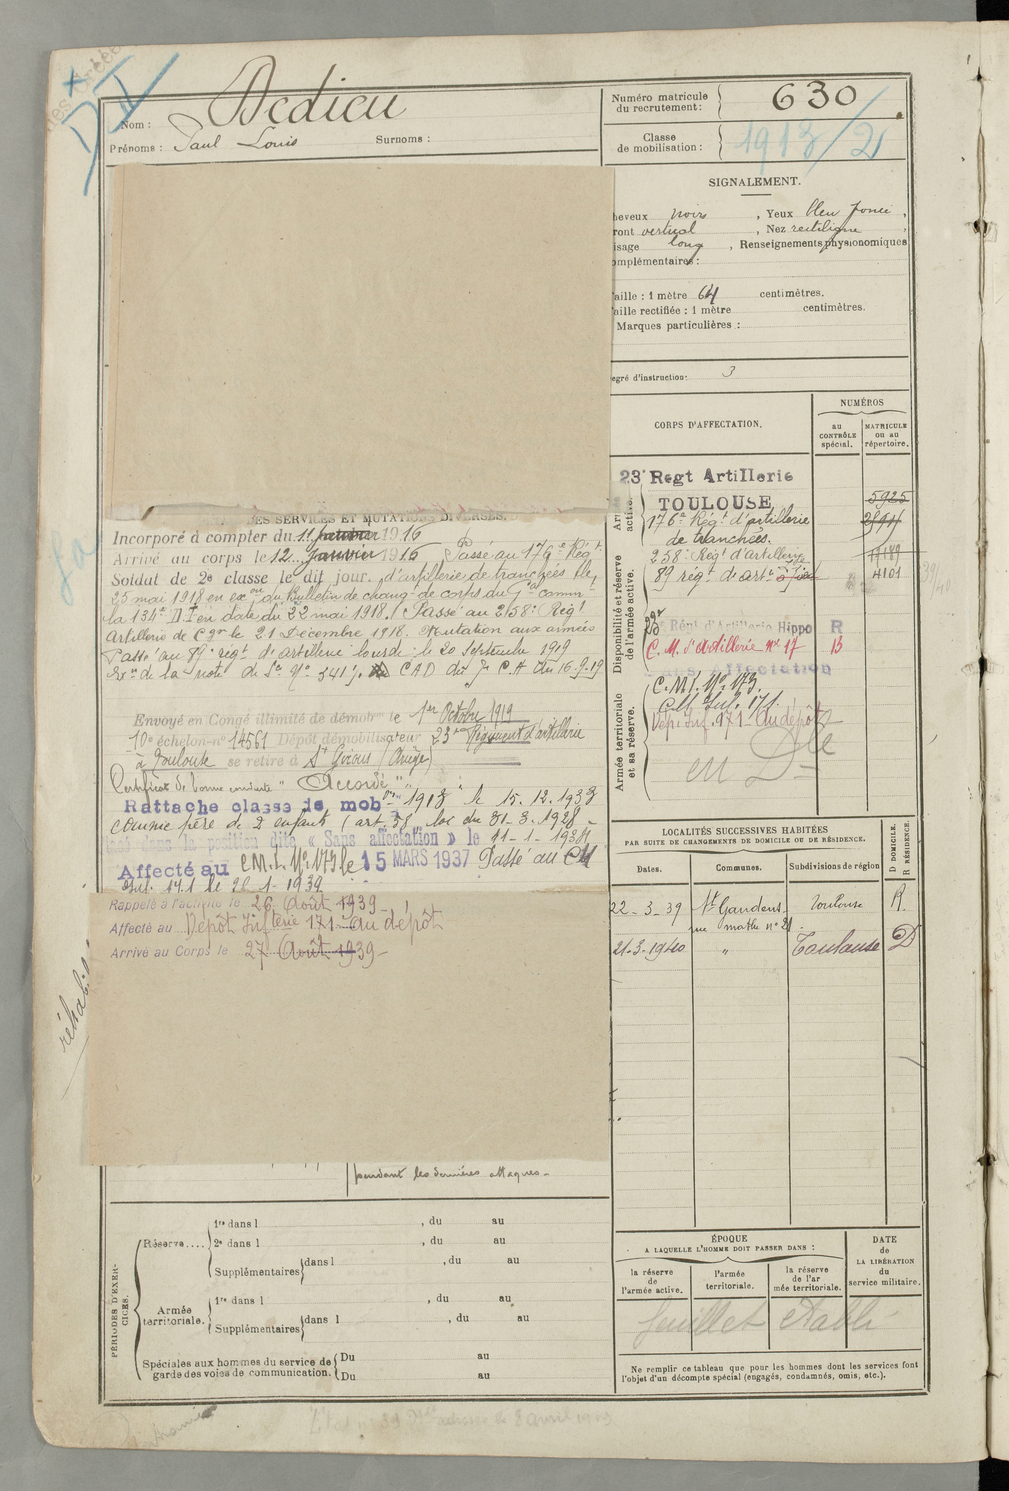 Nom : Dedieu
Prénoms : Paul Louis Surnoms :
Numéro matricule du recrutement : 630
Classe de mobilisation : 1913/2
SIGNALEMENT.
heveux noirs, Yeux bleu foncé,
ront vertical, Nez rectiligne,
isage long, Renseignements physionomiques
omplémentaires :
aille : 1 mètre 64 centimètres.
aille rectifiée : 1 mètre centimètres.
Marques particulières :
egré d'instruction : 3
CORPS D'AFFECTATION.
NUMÉROS
au CONTRÔLE spécial.
MATRICULE ou au répertoire.
23e Regt Artillerie
TOULOUSE 5925
176e Régt d'artillerie
de tranchées.
258e Régt d'Artillerie
89 régt d'artie à pied 4101
Disponibilité et réserve de l'armée active.
Régt d'Artillerie Hippo R
C. M. d'Artillerie no 17 13
Sans Affectation
Armée territoriale et sa réserve.
C.M.I. No 173.
C.M. Inf. 171
Dépôt Inf. 171 au dépôt
DES SERVICES ET MUTATIONS DIVERSES.
Incorporé à compter du 11 Janvier 1916
Arrivé au corps le 12 Janvier 1916 Passé au 176e Régt
Soldat de 2e classe le dit jour. d'artillerie de tranchées le
25 mai 1918 en exon du Bulletin de changt de corps du
la 134e D.I en date du 22 mai 1918. Passé au 258e Régt
Artillerie de Cgne le 21 Décembre 1918. Mutation aux armées
Passé au 89e régt d'artillerie lourde le 20 Septembre 1919
de la note de CAD du 7 CA du 16.9.19
Envoyé en Congé illimité de démobon le 1er Octobre 1919
10e échelon no 14561 Dépôt démobilisateur 23me Régiment d'artillerie
à Toulouse se retire à St Girons (Ariège)
Certificat de bonne conduite "Accordé"
Rattaché classe de mobon 1913 le 15.12.1933
comme père de 2 enfants (art. 58, loi du 31-3.1928
dans la position dite « Sans affectation » le 11-1-193
Affecté au C.M.I. No 173 le 15 MARS 1937 Passé au CM
Inf. 171 le 1-1939
Rappelé à l'activité le 26 Août 1939
Affecté au Dépôt Infterie 171 au dépôt
Arrivé au Corps le 27 Août 1939-
réhabil
LOCALITÉS SUCCESSIVES HABITÉES
PAR SUITE DE CHANGEMENTS DE DOMICILE OU DE RÉSIDENCE.
D DOMICILE.
R RÉSIDENCE.
Dates. Communes. Subdivisions de région
22-3-39 St Gaudens Toulouse R.
rue mathe no 21
21-3-1940 " Toulouse D
pendant les dernières attaques-
PÉRIODES D'EXERCICES.
Réserve....
1re dans l , du au
2e dans l , du au
Supplémentaires dans l , du au
Armée territoriale.
1re dans l , du au
Supplémentaires dans l , du au
Spéciales aux hommes du service de garde des voies de communication.
Du au
Du au
ÉPOQUE
A LAQUELLE L'HOMME DOIT PASSER DANS :
la réserve de l'armée active.
l'armée territoriale.
la réserve de l'armée territoriale.
DATE de LA LIBÉRATION du service militaire.
feuillet établi
Ne remplir ce tableau que pour les hommes dont les services font
l'objet d'un décompte spécial (engagés, condamnés, omis, etc.).